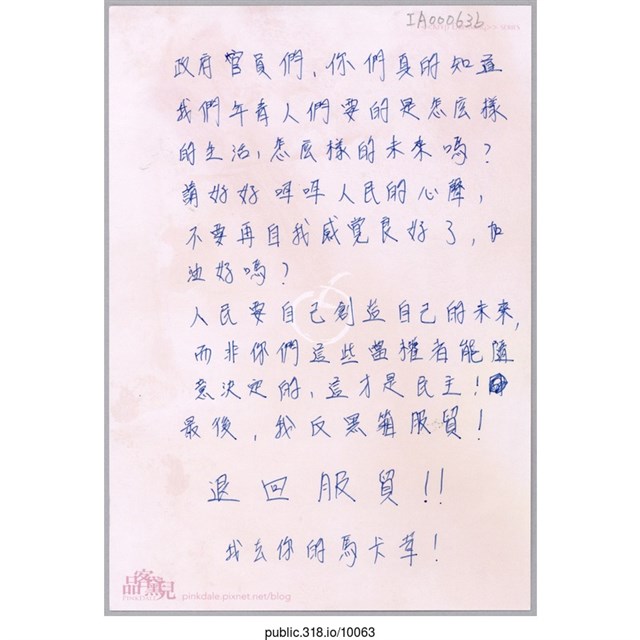 IA000636
政府官員們、你們真的知道
我們年青人們要的是怎麼樣
的生活,怎麼樣的未來嗎?
請好好呵呵人民的心聲,
不要再自我感覺良好了,加
油好嗎?
人民要自己創造自己的未來,
而非你們這些當權者能隨
意決定的、這才是民主!
最後,我反黑箱服貿!
退回服貿!!
我去你的馬卡茸!
品客黛兒
pinkdale.pixnet.net/blog
public.318.io/10063